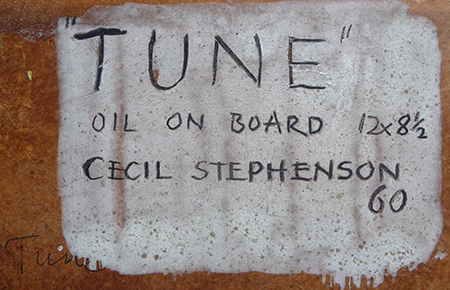 "TUNE"
OIL ON BOARD 12x8½
CECIL STEPHENSON
60
Tune